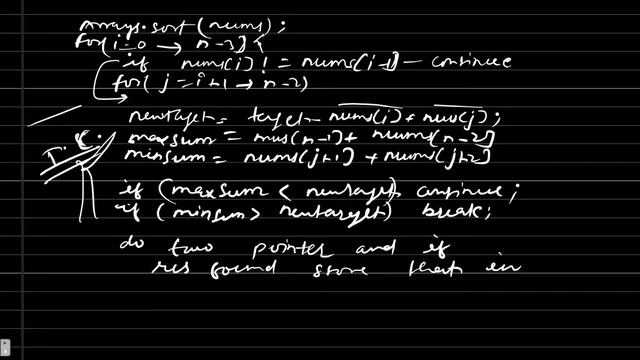 Arrays.sort(nums);
for(i=0 → n-3){
if nums[i] != nums[i-1] — continue
for(j=i+1 → n-2)
newtarget = target - nums[i] + nums[j];
maxsum = nums[n-1] + nums[n-2]
minsum = nums[j+1] + nums[j+2]
if (maxsum < newtarget) continue;
if (minsum > newtarget) break;
do two pointer and if
res found store that in